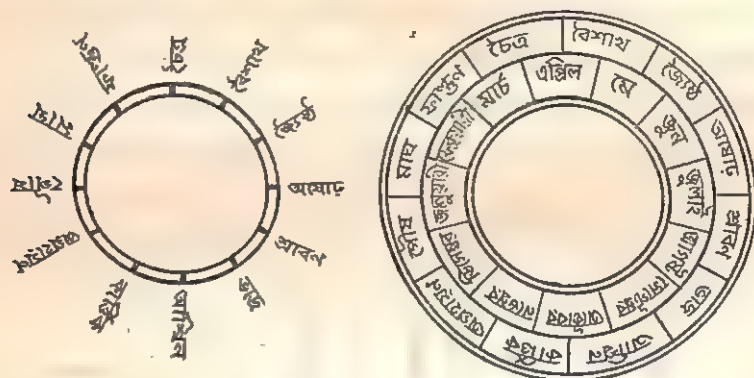 চৈত্র
বৈশাখ
জ্যৈষ্ঠ
আষাঢ়
শ্রাবন
ভাদ্র
আশ্বিন
কার্তিক
অগ্রহায়ন
পৌষ
মাঘ
ফাল্গুন
চৈত্র
বৈশাখ
জ্যৈষ্ঠ
আষাঢ়
শ্রাবন
ভাদ্র
আশ্বিন
কার্তিক
অগ্রহায়ন
পৌষ
মাঘ
ফাল্গুন
এপ্রিল
মে
জুন
জুলাই
আগষ্ট
সেপ্টেম্বর
অক্টোবর
নভেম্বর
ডিসেম্বর
জানুয়ারী
ফেব্রুয়ারী
মার্চ